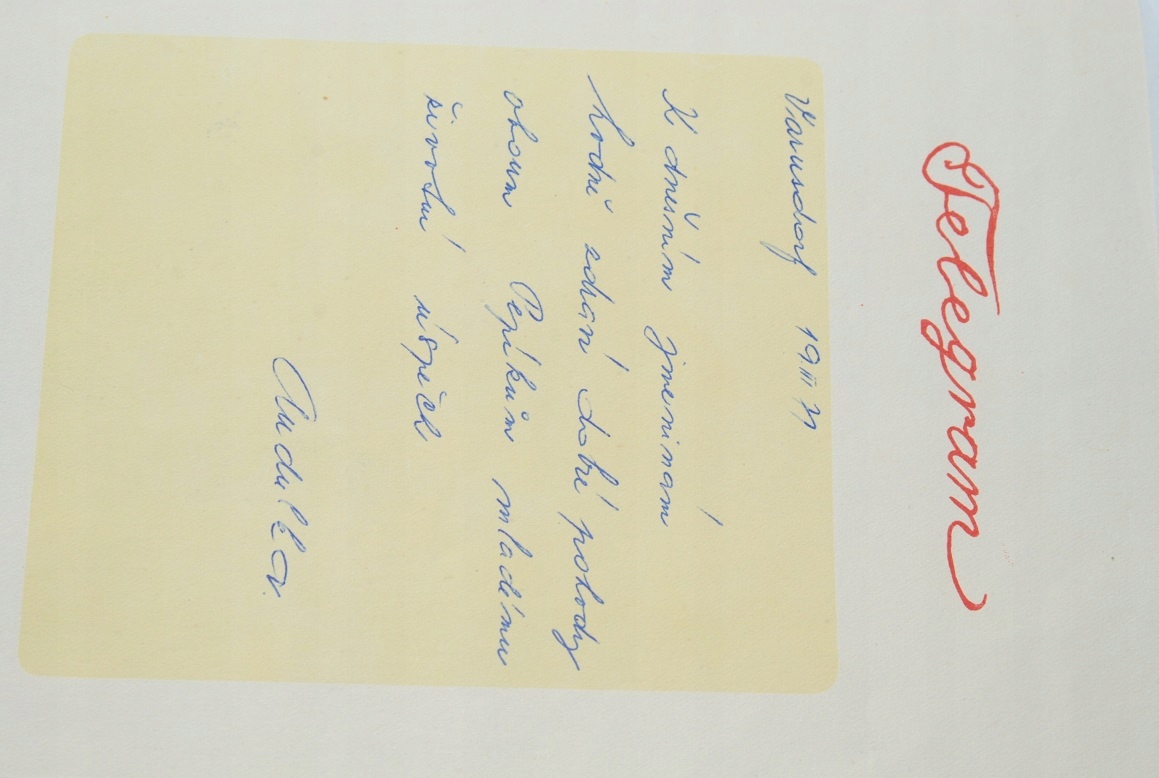 Telegram
Varnsdorf 19 III 71
K dnešním jmeninám
hodně zdraví dobré pohody
oboum Pepíkům mladému
životní úspěch
Andulka.